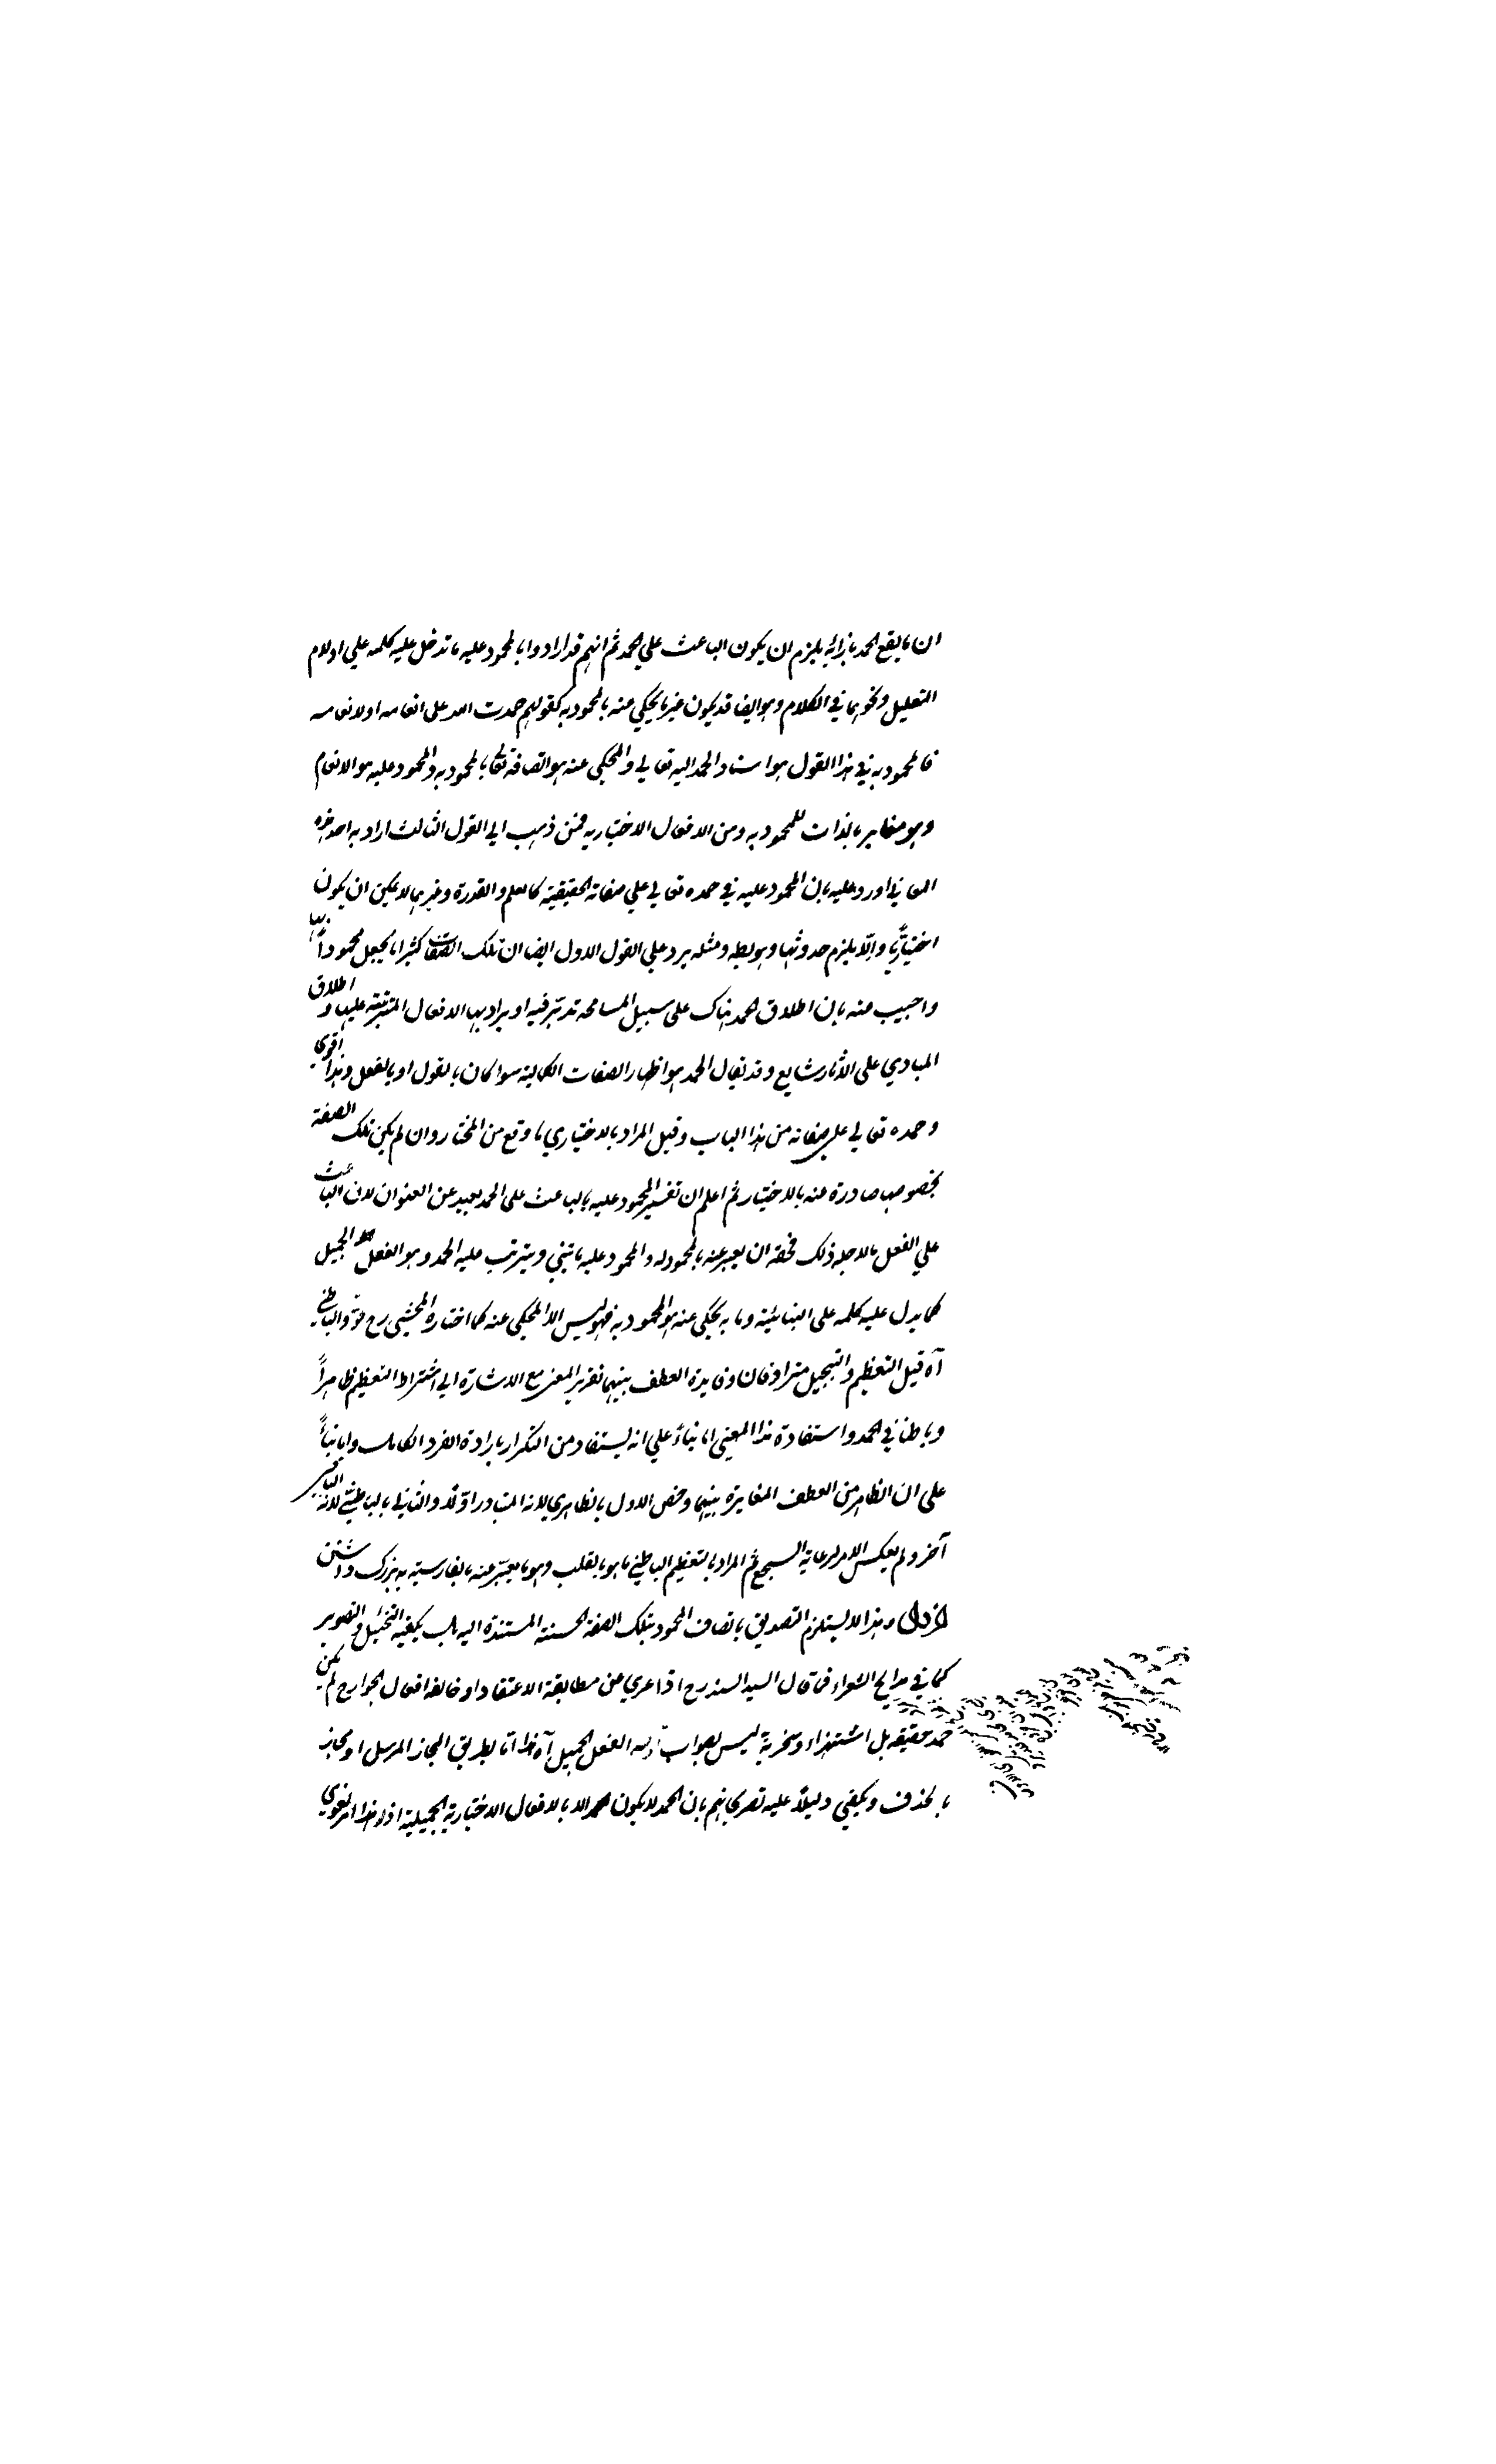 ان ما يقع الحمد بازائه يلزم ان يكون الباعث علي الحمد ثم انهم قد ارادوا بالمحمود عليه ما تدخل عليه كلمه علي او لام
التعليل ونحوهما في الكلام وهو ايضا قد يكون غير ما يحكي عنه بالمحمود به كقولهم حمدت الله علي انعامه او لانعامه
فالمحمود به في هذا القول هو اسناد الحمد اليه تعالي والمحكي عنه هو اتصافه تعالي بالمحمود به والمحمود عليه هو الانعام
وهو مغاير بالذات للمحمود به ومن الافعال الاختياريه فمن ذهب الي القول الثالث اراد به احد هذه
المعاني اورد عليه بان المحمود عليه في حمده تعالي علي صفاته الحقيقية كالعلم والقدرة وغيرهما لا يمكن ان يكون
اختياريا والّا يلزم حدوثها وهو بط ومثله يرد علي القول الاول ايضا ان تلك الصفات كثيرا ما يجعل محمودا بها
واجيب عنه بان اطلاق الحمد هناك علي سبيل المسامحه تدبر فيه او يراد بها الافعال المترتبة عليها و اطلاق
المبادي علي الآثار شايع وقد يقال الحمد هو اظهار الصفات الكماليه سوا كان بالقول او بالفعل وهذا اقوي
وحمده تعالي علي صفاته من هذا الباب وقيل المراد بالاختياري ما وقع من المختار وان لم يكن تلك الصفة
بخصوصها صادرة عنه بالاختيار ثم اعلم ان تفسير المحمود عليه بالباعث علي الحمد بعيد عن العنوان لان الباعث
علي الفعل ما لاجله ذلك فحقه ان يعبر عنه بالمحمود له والمحمود عليه ما يبتني ويترتب عليه الحمد وهو الفعل الجميل
كما يدل عليه كلمه علي البنائية وما به يحكي عنه هو المحمود به فهو ليس الا المحكي عنه كما اختاره المحشي رح قوله والباطني
آه قيل التعظيم والتبجيل مترادفان وفايدة العطف بينهما تقرير المعني مع الاشارة الي اشتراط التعظيم ظاهراً
وباطنا في الحمد واستفادة هذا المعني اما بناءً علي انه يستفاد من التكرار بارادة الفرد الكامل واما بناءً
علي ان الظاهر من العطف المغايرة بينهما وخص الاول بالظاهري لانه المتبادر اولا والثاني بالباطني لانه
آخر ولم يعكس الامر لرعاية السجع ثم المراد بالتعظيم الباطني ما هو بالقلب وهو ما يعبّر عنه بالفارسية به بزرك داشتن
از دل وهذا لا يستلزم التصديق باتصاف المحمود بتلك الصفة الحسنة المستندة اليه بل يكفيه التخيل والتصوير
كما في مدايح الشعراء فما قال السيد السند رح اذا عري عن مطابقة الاعتقاد او خالفه افعال الجوارح لم يكن
حمد حقيقه بل استهزاء وسخرية ليس بصواب قوله الفعل الجميل آه هذا اما بطريق المجاز المرسل او مجاز
بالحذف ويكفي دليلاً عليه تصريحاتهم بان الحمد لا يكون الا بالافعال الاختيارية الجميلية